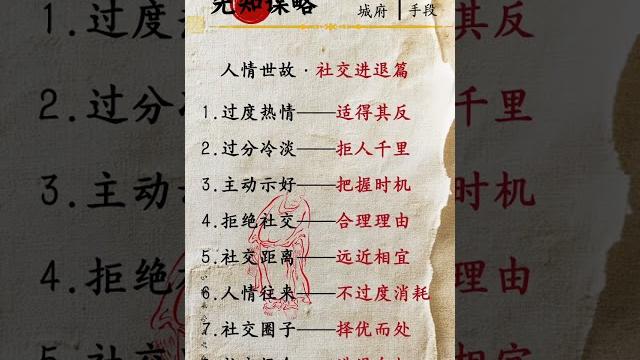 先知谋略
城府 | 手段
人情世故·社交进退篇
1.过度热情——适得其反
2.过分冷淡——拒人千里
3.主动示好——把握时机
4.拒绝社交——合理理由
5.社交距离——远近相宜
6.人情往来——不过度消耗
7.社交圈子——择优而处